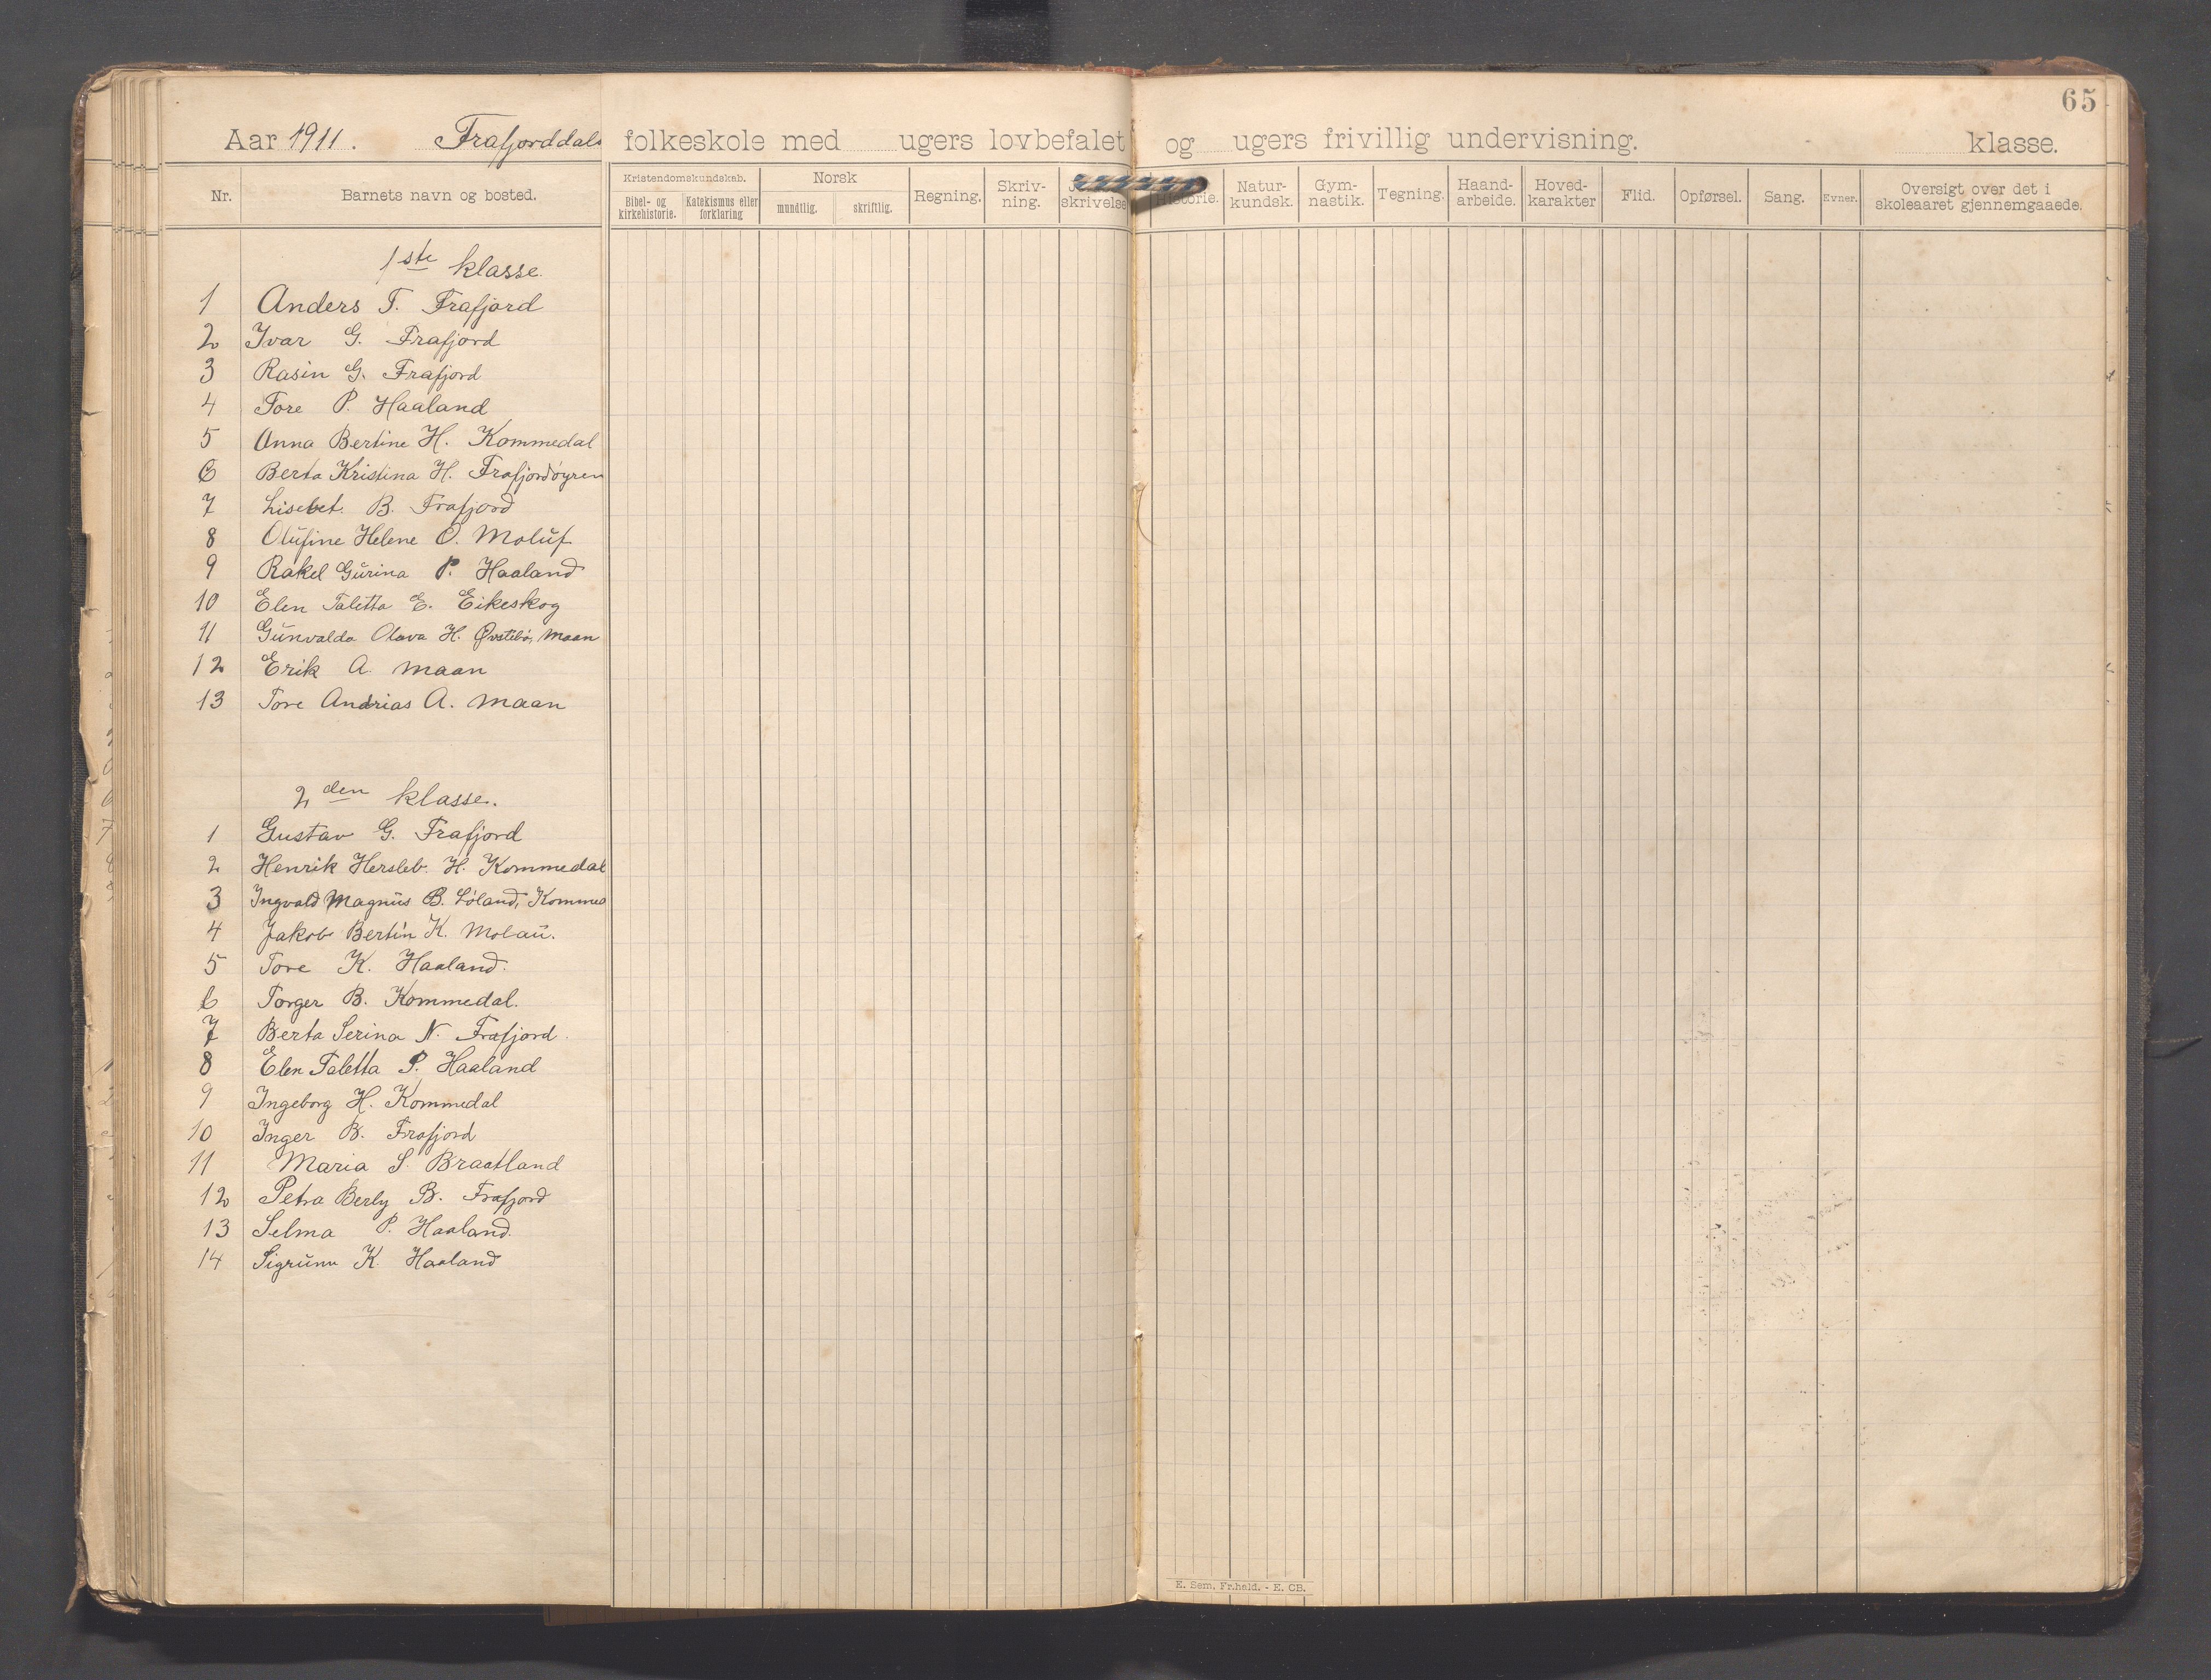 65
Aar 1911. Frafjorddals folkeskole med ugers lovbefalet og ugers frivillig undervisning. klasse.
Nr. Barnets navn og bosted. Kristendomskundskab. Bibel- og kirkehistorie. Katekismus eller forklaring Norsk mundtlig. skriftlig. Regning. Skriv-ning. skrivelse Historie. Natur-kundsk. Gym-nastik. Tegning. Haand-arbeide. Hoved-karakter Flid. Opførsel. Sang. Evner. Oversigt over det i skoleaaret gjennemgaaede.
1ste klasse.
1 Anders T. Frafjord
2 Ivar G. Frafjord
3 Rasin G. Frafjord
4 Tore P. Haaland
5 Anna Bertine H. Kommedal
6 Berta Kristina H. Frafjordøyren
7 Lisebet. B. Frafjord
8 Olufine Helene O. Moluf
9 Rakel Gurina P. Haaland
10 Elen Taletta E. Eikeskog
11 Gunvalda Olava H. Øvstibø, Maan
12 Erik A. Maan
13 Tore Andrias A. Maan
2den klasse.
1 Gustav G. Frafjord
2 Henrik Hersleb. H. Kommedal
3 Ingvald Magnus B. Løland, Kommed
4 Jakob Bertin K. Molau.
5 Tore K. Haaland.
6 Torger B. Kommedal.
7 Berta Serina N. Frafjord.
8 Elen Taletta P. Haaland
9 Ingeborg H. Kommedal
10 Inger B. Frafjord
11 Maria S. Braatland
12 Petra Berly B. Frafjord
13 Selma P. Haaland.
14 Sigrunn K. Haaland
E. Sem, Fr.hald. - E. CB.